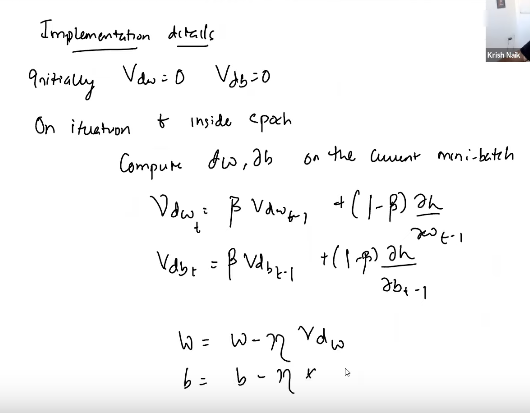 Implementation details
Krish Naik
Initially Vdw = 0 Vdb = 0
On iteration t inside epoch
Compute ∂w, ∂b on the current mini-batch
Vdw_t = β Vdw_t-1 + (1-β) ∂h/∂w_t-1
Vdb_t = β Vdb_t-1 + (1-β) ∂h/∂b_t-1
w = w - η Vdw
b = b - η *